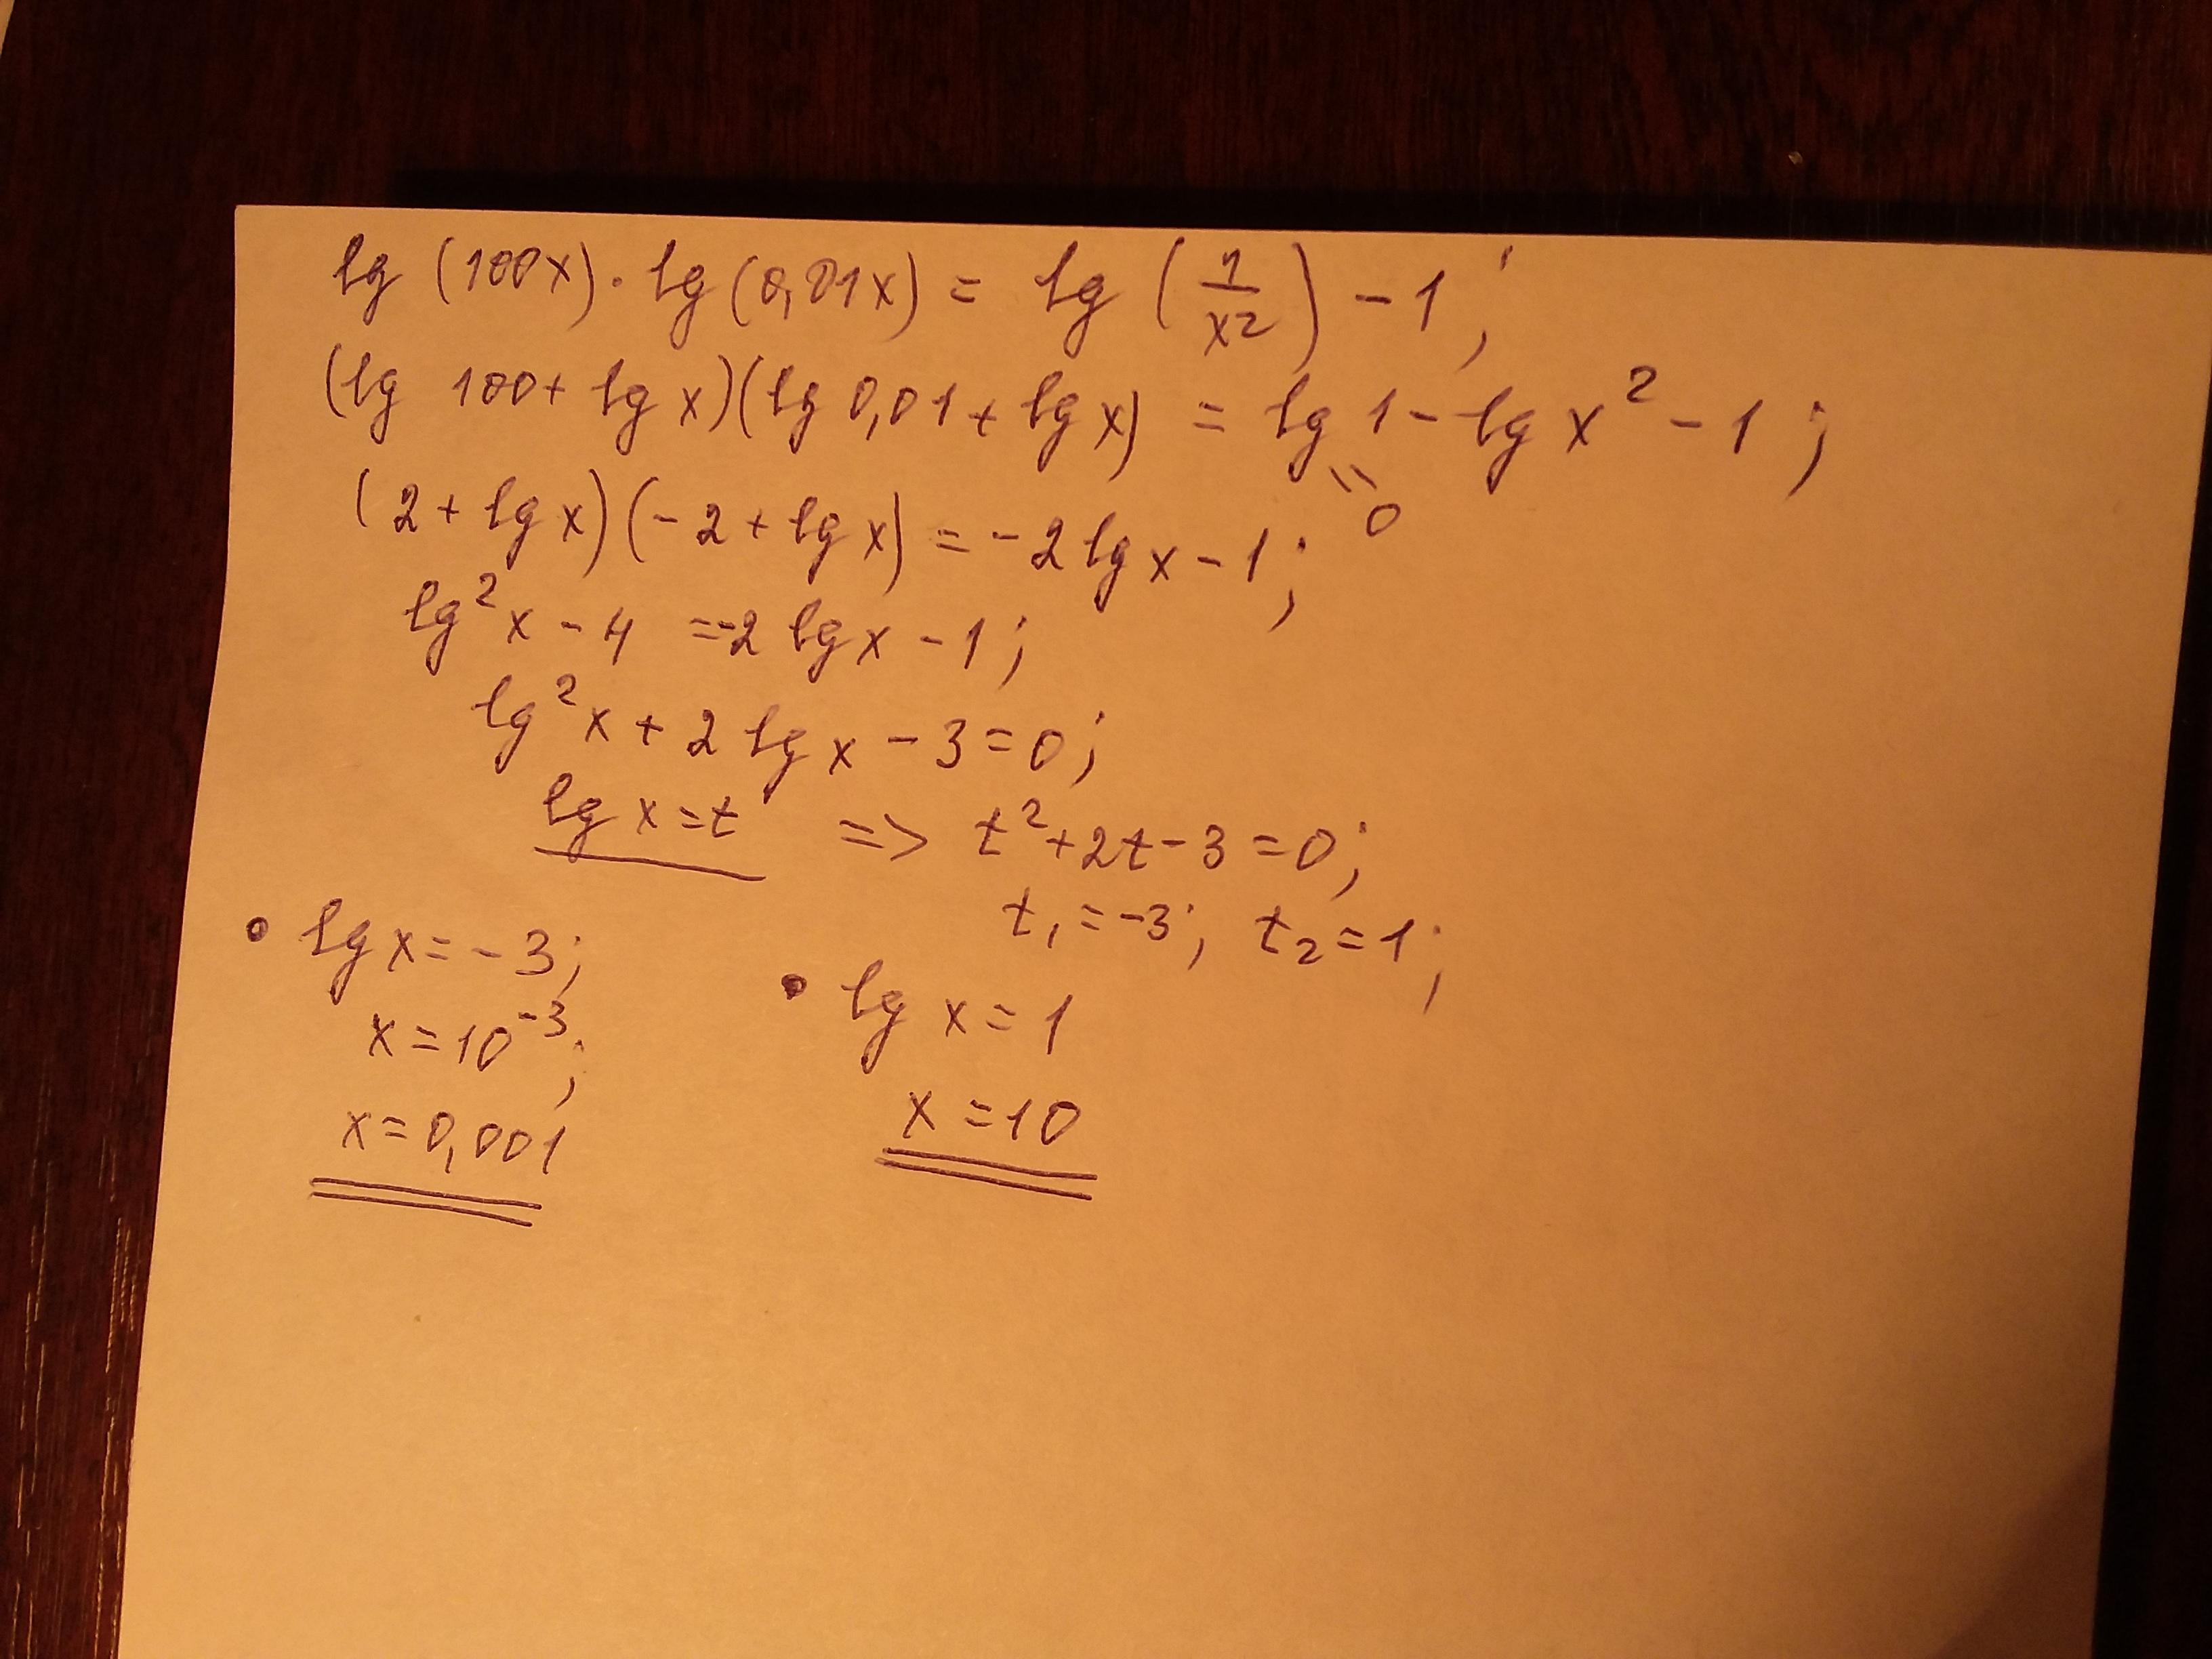 lg (100x) · lg (0,01x) = lg (1/x²) - 1;
(lg 100 + lg x)(lg 0,01 + lg x) = lg 1 - lg x² - 1;
= 0
(2 + lg x)(-2 + lg x) = -2 lg x - 1;
lg² x - 4 = -2 lg x - 1;
lg² x + 2 lg x - 3 = 0;
lg x = t => t² + 2t - 3 = 0;
t₁ = -3; t₂ = 1;
• lg x = -3;
x = 10⁻³;
x = 0,001
• lg x = 1
x = 10